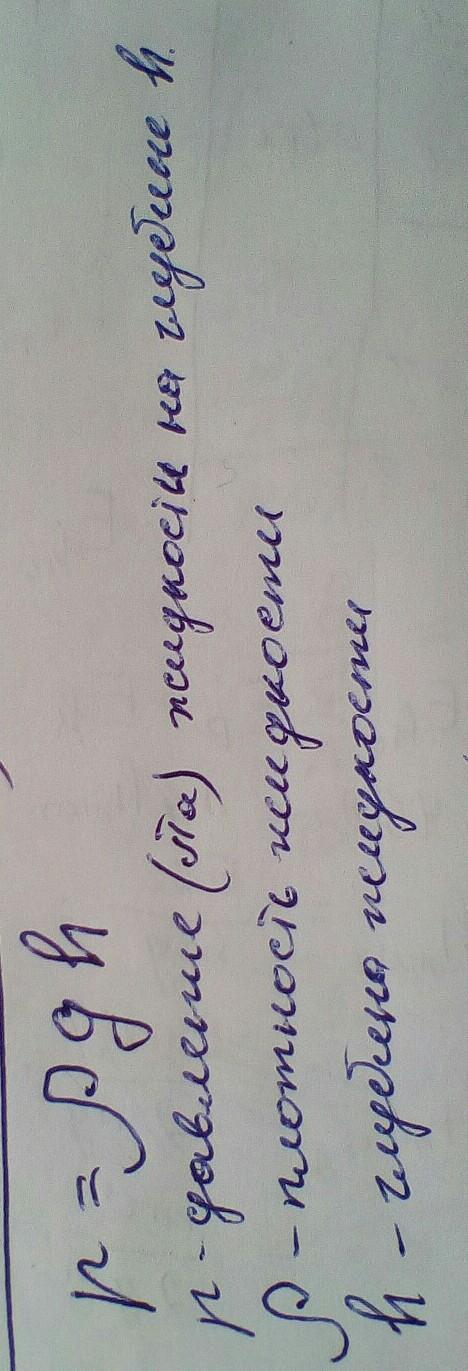 p = ρ g h
p - давление (Па) жидкости на глубине h.
ρ - плотность жидкости
h - глубина жидкости